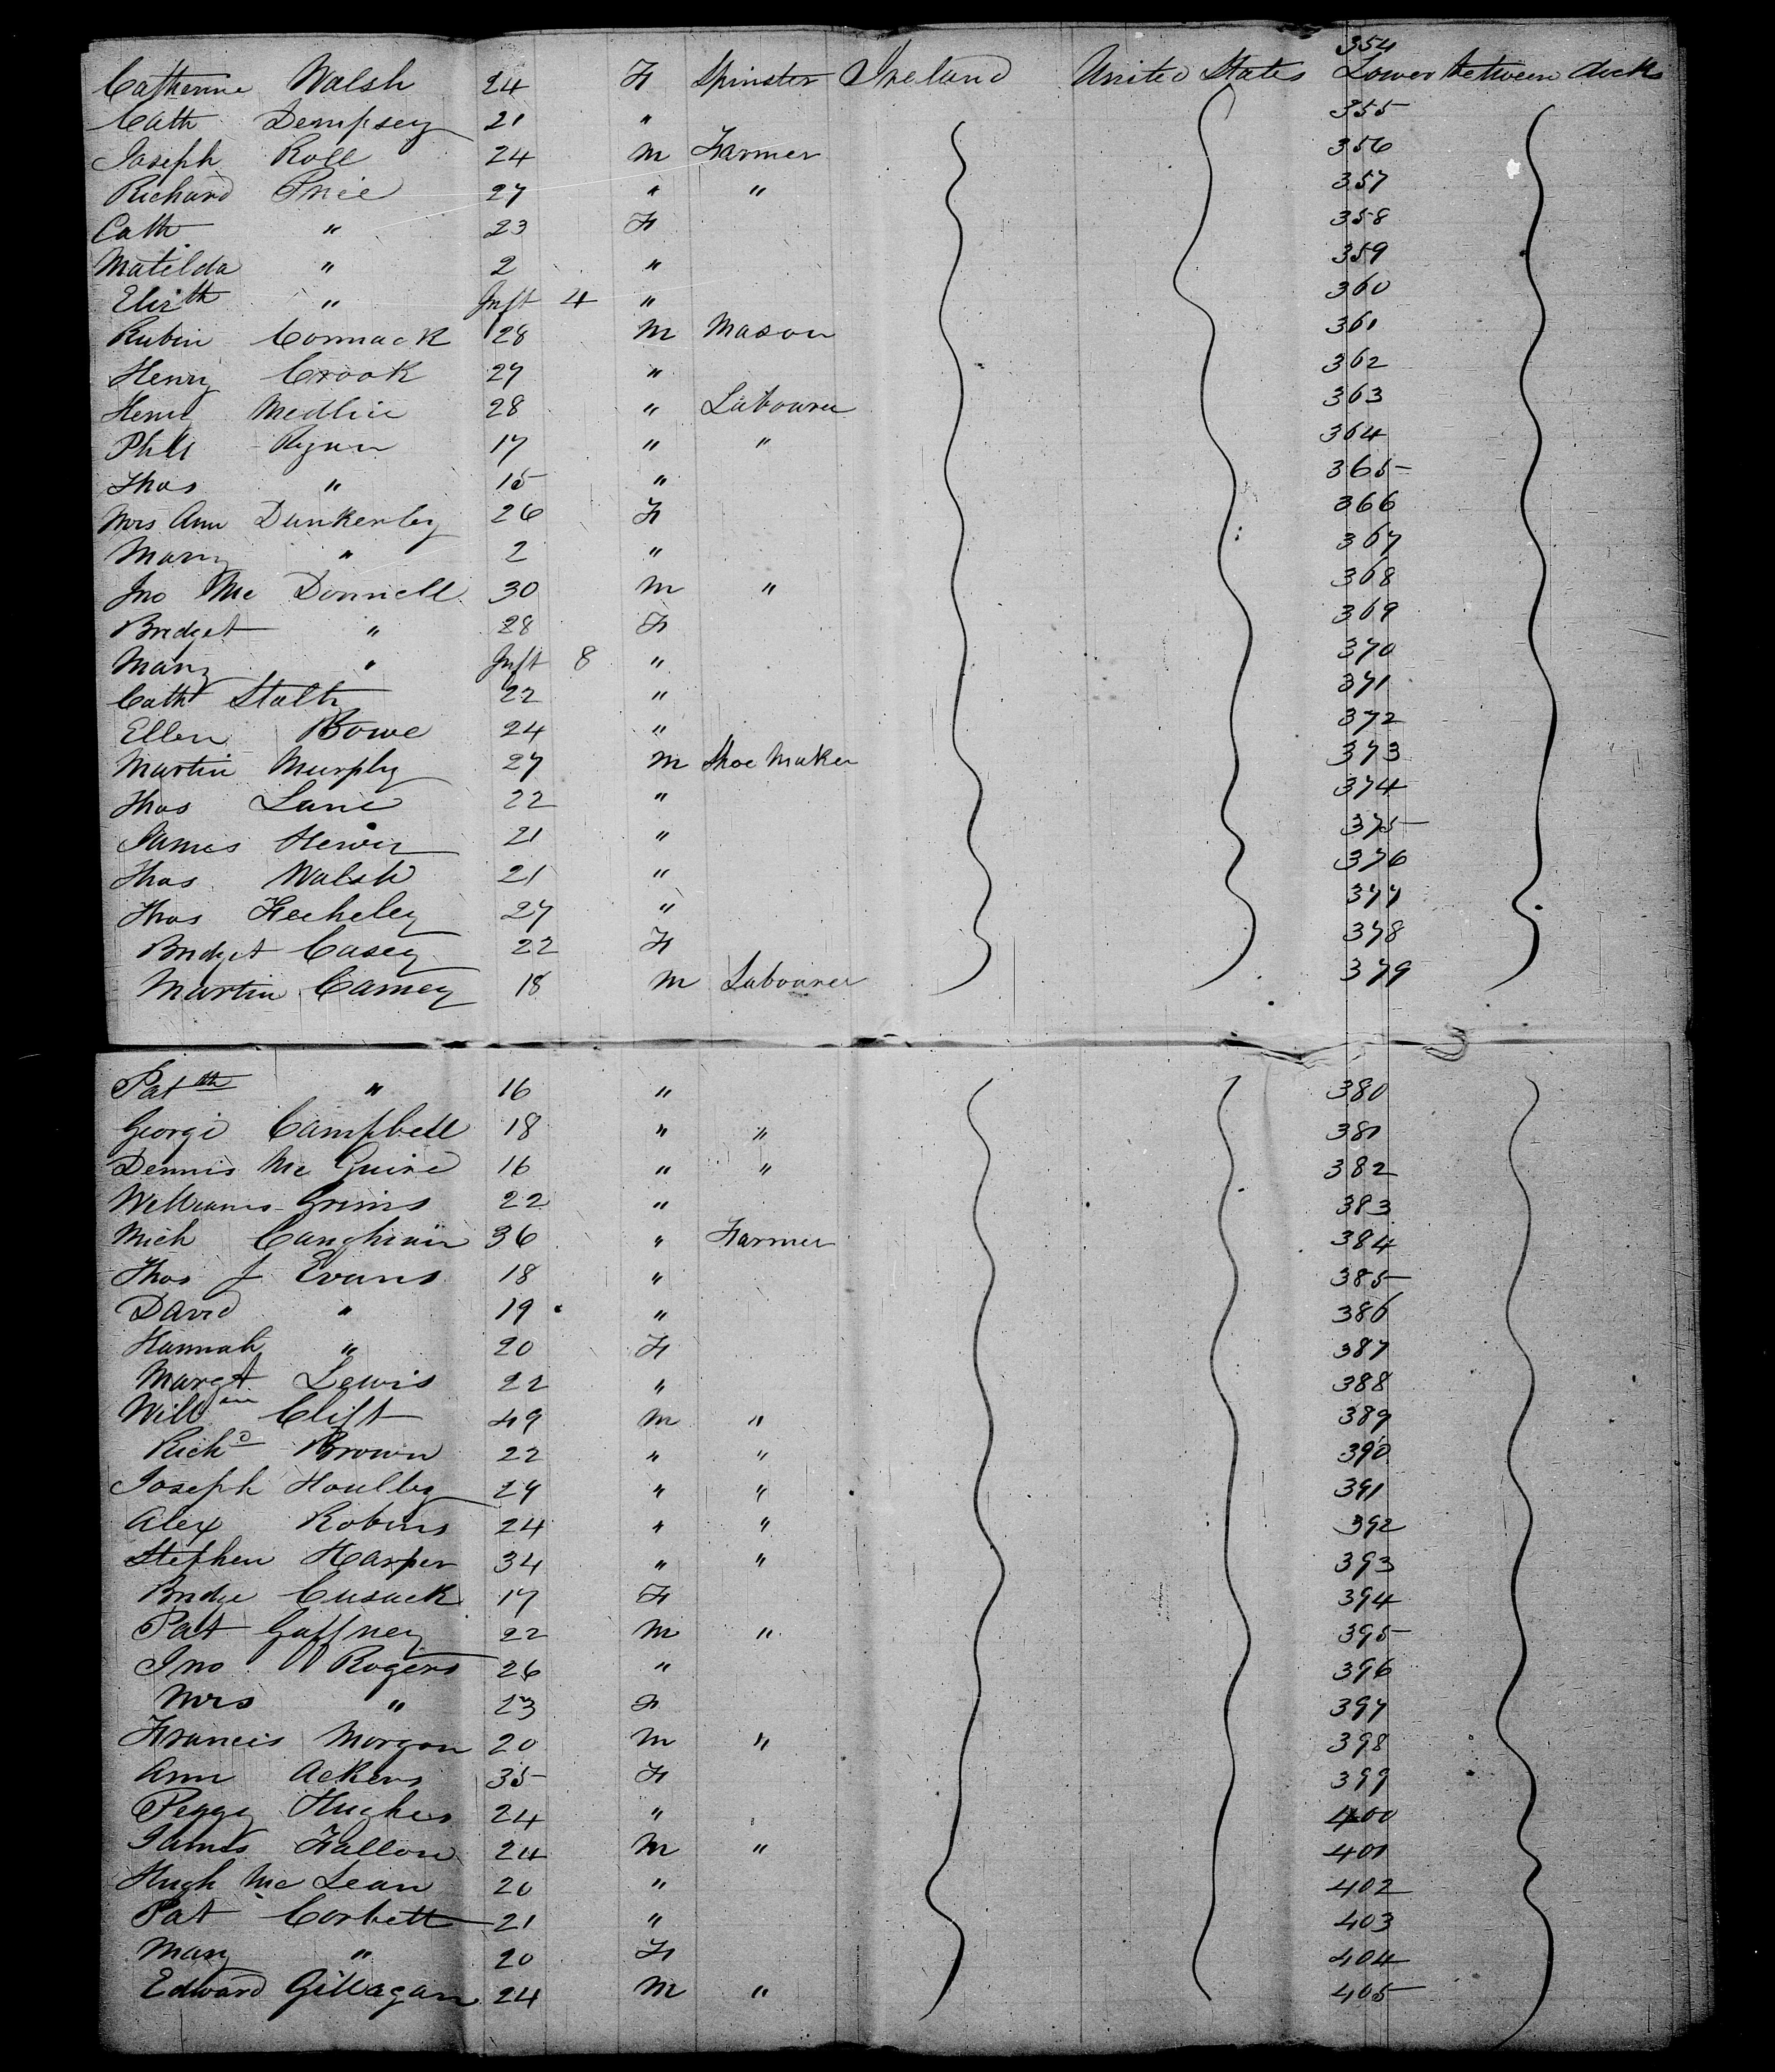 354
Catherine Walsh 24 F Spinster Ireland United States Lower between decks
Cath Dempsey 21 " 355
Joseph Roll 24 M Farmer 356
Richard Price 27 " " 357
Cath " 23 F 358
Matilda " 2 " 359
Elizth " Inft 4 " 360
Rubin Cormack 28 M Mason 361
Henry Crook 27 " 362
Henry Medlin 28 " Labourer 363
Phill Ryan 17 " " 364
Thos " 15 " 365
Mrs Ann Dunkerley 26 F 366
Mary " 2 " 367
Jno Mc Donnell 30 M " 368
Bridget " 28 F 369
Mary " Inft 8 " 370
Cath 22 " 371
Ellen Bowe 24 " 372
Martin Murphy 27 M Shoe Maker 373
Thos Lane 22 " 374
James 21 " 375
Thos Walsh 21 " 376
Thos 27 " 377
Bridget Casey 22 F 378
Martin Carney 18 M Labourer 379
Pat " 16 " 380
George Campbell 18 " " 381
Dennis Mc Guire 16 " " 382
Williams Grims 22 " 383
Mich 36 " Farmer 384
Thos J Evans 18 " 385
David " 19 " 386
Hannah " 20 F 387
Margt Lewis 22 " 388
Willam Clift 49 M " 389
Richd Brown 22 " " 390
Joseph Houlby 29 " " 391
Alex Robins 24 " " 392
Stephen Harper 34 " " 393
Bridge Cusack 17 F 394
Pat Gaffney 22 M " 395
Jno Rogers 26 " 396
Mrs " 23 F 397
Francis Morgan 20 M " 398
Ann Ackens 35 F 399
Peggy Hughes 24 " 400
James Fallon 24 M " 401
Hugh Mc Lean 20 " 402
Pat Corbett 21 " 403
Mary " 20 F 404
Edward Gillagan 24 M " 405